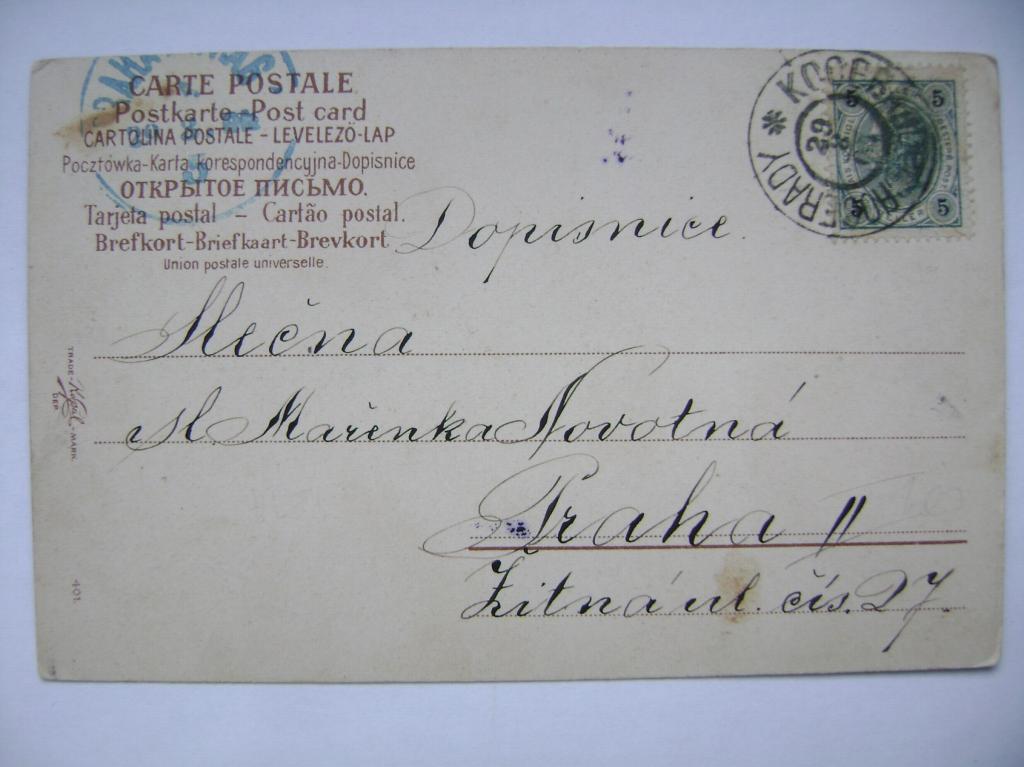 CARTE POSTALE
Postkarte-Post card
CARTOLINA POSTALE - LEVELEZÖ-LAP
Pocztówka-Karta Korespondencyjna-Dopisnice
ОТКРЫТОЕ ПИСЬМО.
Tarjeta postal - Cartão postal.
Brefkort-Briefkaart-Brevkort
Union postale universelle.
Dopisnice.
Slečna
Sl. Mařenka Novotná
Praha II
Žitná ul. čís. 27.
TRADE MARK.
DEP.
401.
29
5 5
5 5